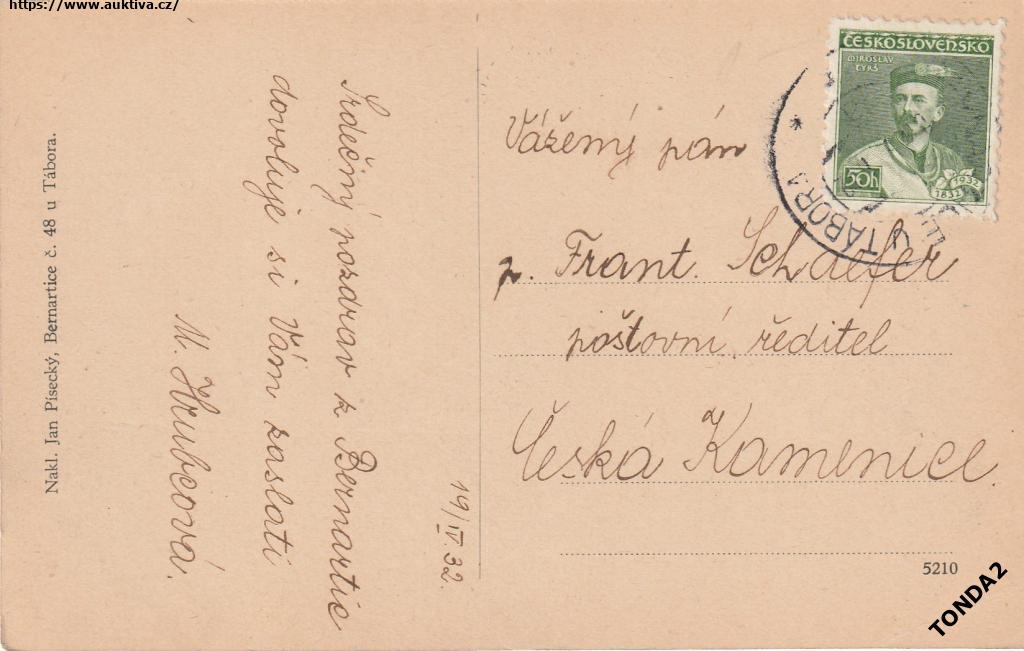 https://www.auktiva.cz/
Nakl. Jan Písecký, Bernartice č. 48 u Tábora.
Srdečný pozdrav z Bernartic
dovoluje si Vám zaslati
M. Hrubcová.
19/IV.32.
ČESKOSLOVENSKO
MIROSLAV
TYRŠ
50h
1832 1932
U TÁBORA
Vážený pán
p. Frant. Schaefer
poštovní ředitel
Česká Kamenice.
5210
TONDA2